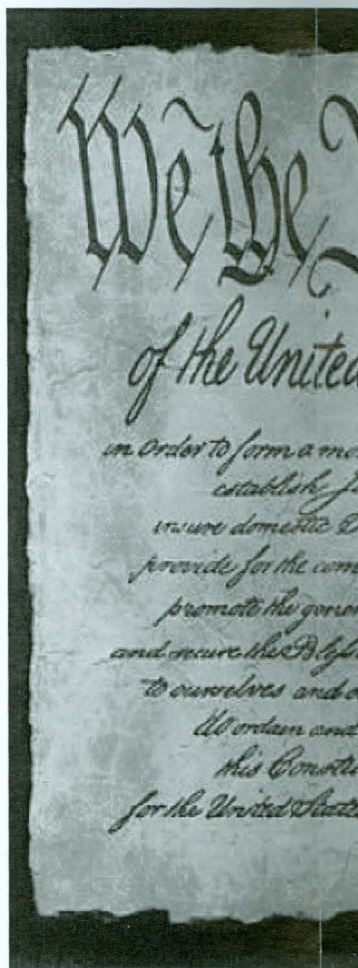 We the
of the United
in Order to form a mo
establish J
insure domestic T
provide for the com
promote the gene
and secure the Bless
to ourselves and o
do ordain and
this Constitu
for the United State